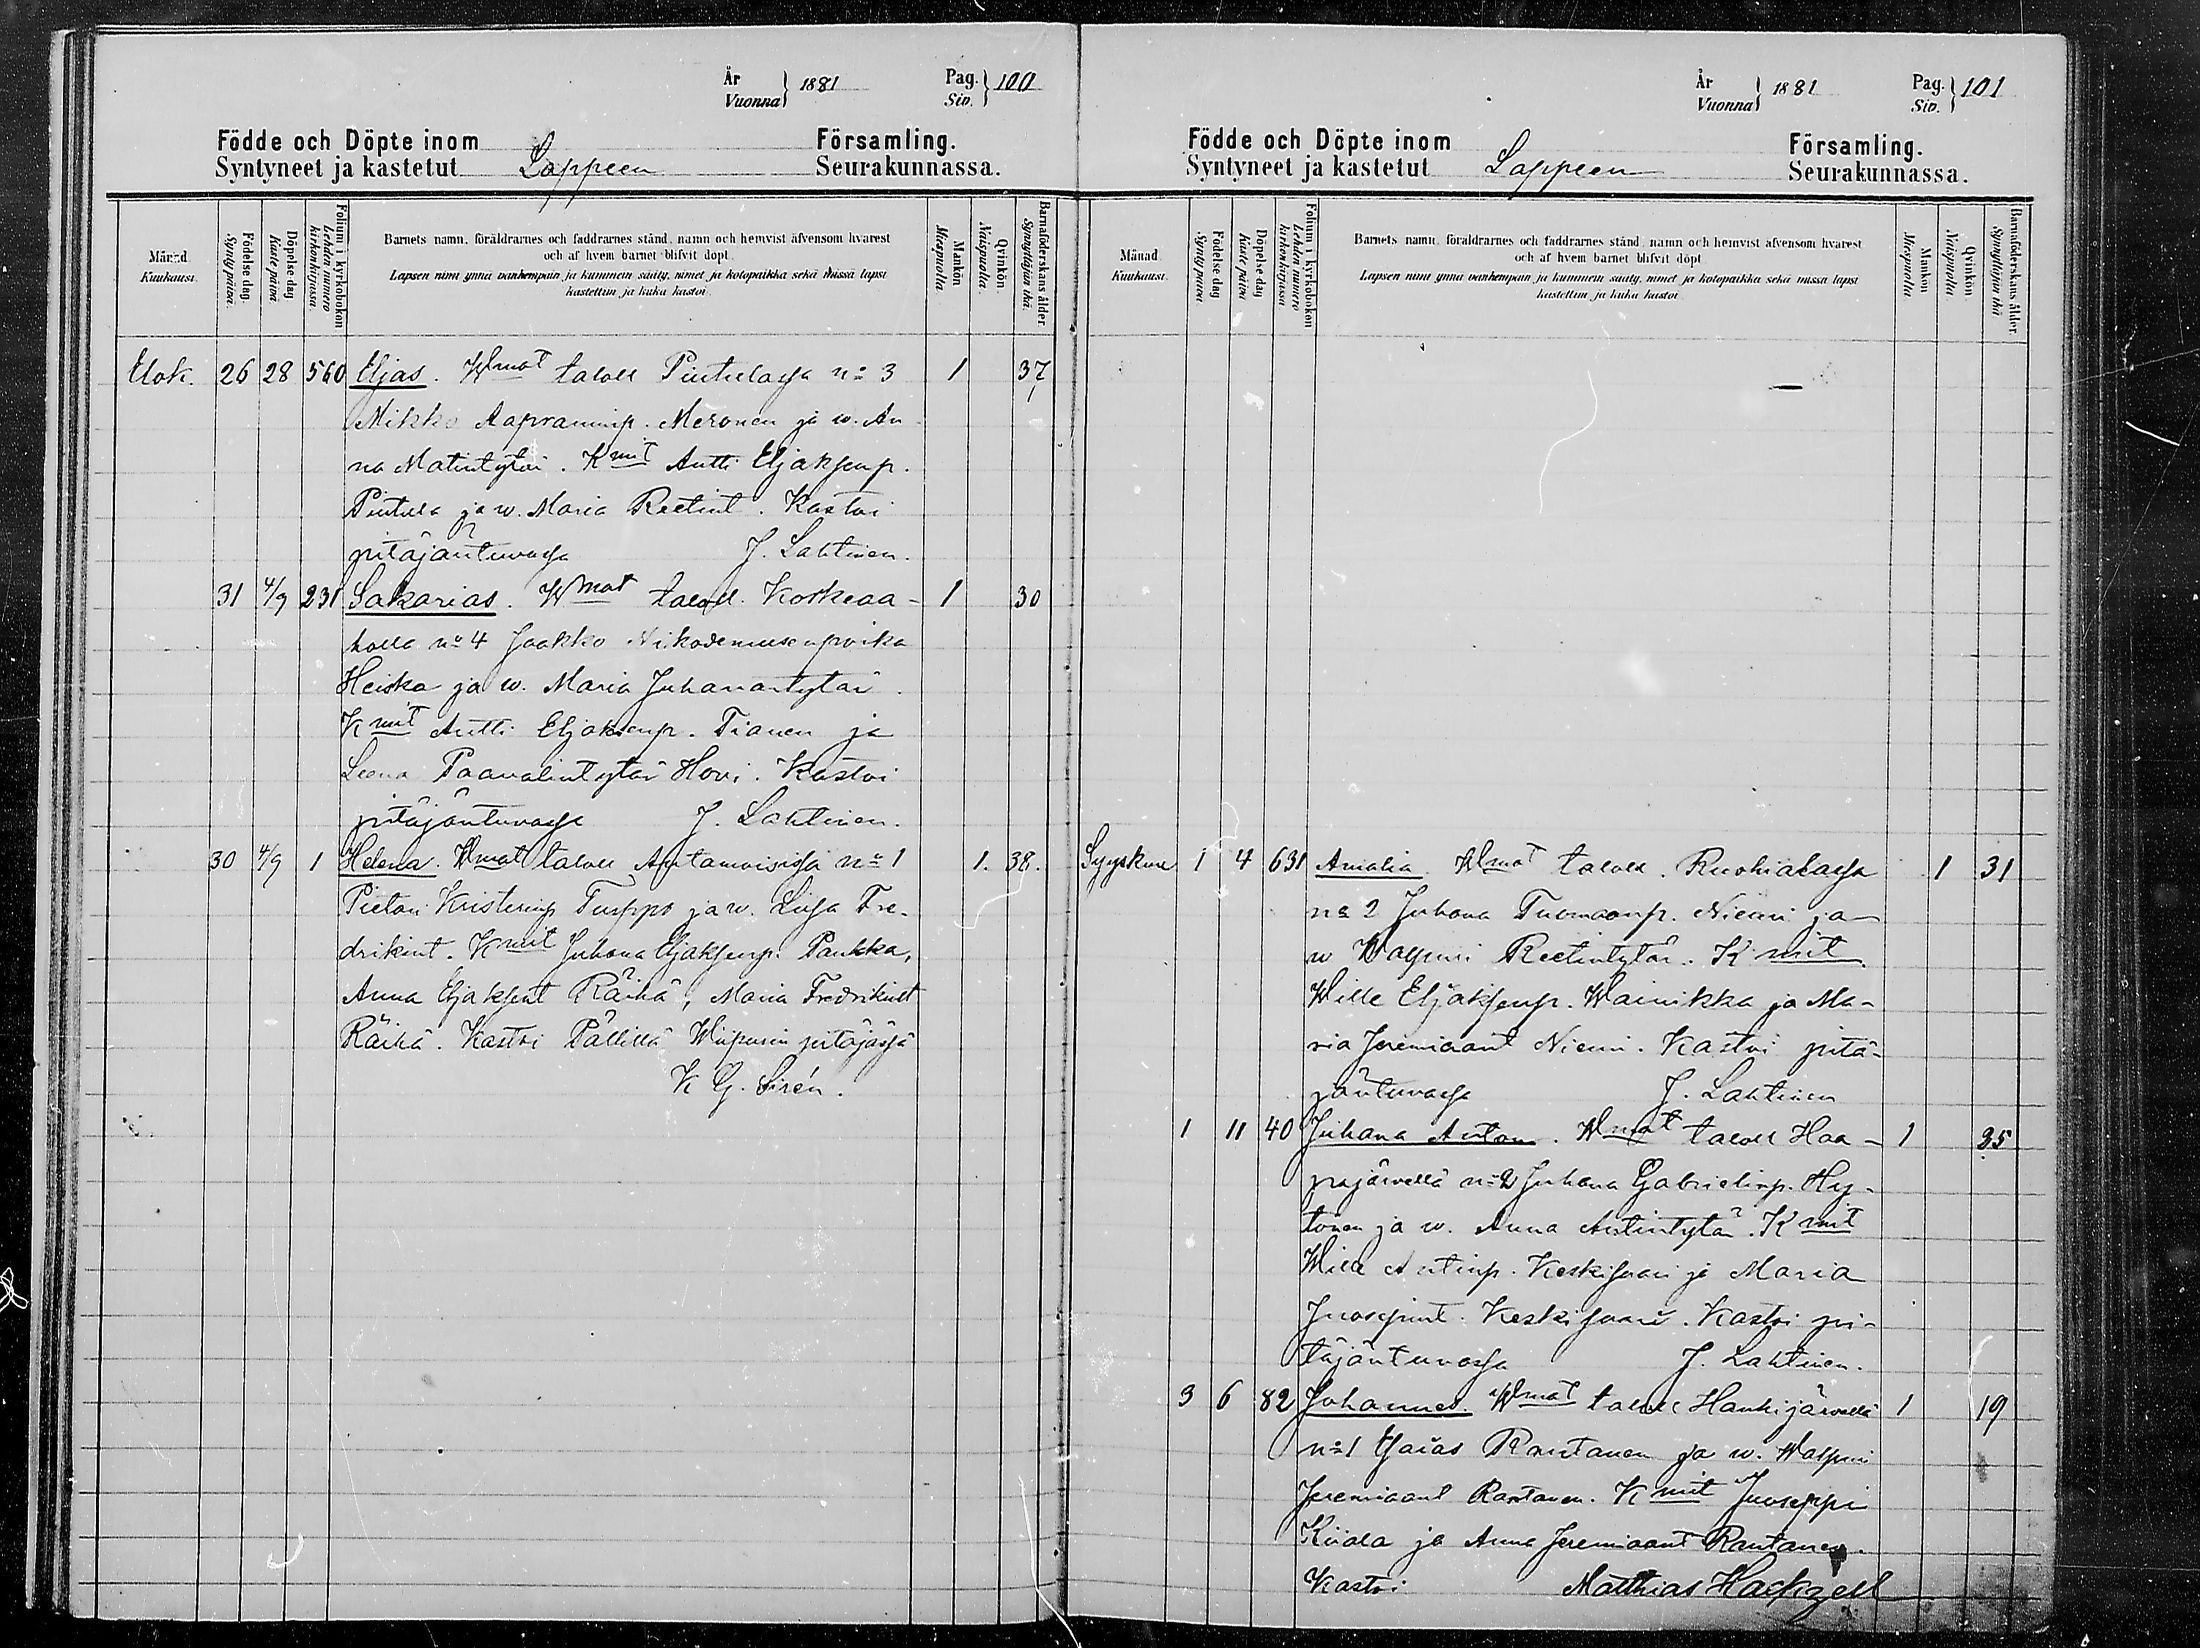 År
Vuonna } 1881 Pag.
Siv. } 100
Födde och Döpte inom Församling.
Syntyneet ja kastetut Lappeen Seurakunnassa.
Månad.
Kuukausi.
Födelse dag.
Synty päivä.
Döpelse dag
Kaste päivä.
Folium i kyrkoboken
Lehden numero
kirkonkirjassa.
Barnets namn, föräldrarnes och faddrarnes stånd, namn och hemvist äfvensom hvarest
och af hvem barnet blifvit döpt.
Lapsen nimi ynnä vanhempain ja kummein sääty, nimet ja kotopaikka sekä missä lapsi
kastettiin ja kuka kastoi.
Mankön
Miespuolia.
Qvinkön.
Naispuolia.
Barnaföderskans ålder
Synnyttäjän ikä.
Elok. 26 28 560 Eljas. Wmat taloll Pintulassa no 3 1 37
Mikko Aapraminp. Meronen ja w. An
na Matintytär. Kmit Antti Eljaksenp.
Pintula ja w. Maria Reetint. Kastoi
pitäjäntuvassa J. Lahtinen.
31 4/9 231 Sakarias. Wmat taloll. Koskeaa- 1 30
holla no 4 Jaakko Nikodemusenpoika
Heiska ja w. Maria Juhanantytär.
Kmit Antti Eljaksenp. Tianen ja
Leena Paavalintytär Hovi. Kastoi
pitäjäntuvassa J. Lahtinen.
30 4/9 1 Helena. Wmat taloll no 1 1. 38.
Pietari Kristerinp ja w. Liisa Fre-
drikint. Kmit Juhana Eljaksenp. Pankka,
Anna Eljaksent Räihä, Maria Fredrikint
Räihä. Kastoi Pällillä Wiipurin pitäjässä
K G. Sirén.
År
Vuonna } 1881 Pag.
Siv. } 101
Födde och Döpte inom Församling.
Syntyneet ja kastetut Lappeen Seurakunnassa.
Månad
Kuukausi.
Födelse dag
Synty päivä
Döpelse dag
Kaste päivä
Folium i kyrkoboken
Lehden numero
kirkonkirjassa
Barnets namn, föräldrarnes och faddrarnes stånd, namn och hemvist äfvensom hvarest
och af hvem barnet blifvit döpt
Lapsen nimi ynnä vanhempain ja kummein sääty, nimet ja kotopaikka sekä missä lapsi
kastettiin ja kuka kastoi
Mankön
Miespuolia
Qvinkön
Naispuolia
Barnaföderskans ålder
Synnyttäjän ikä
Syyskuu 1 4 631 Amalia. Wmat taloll. Ruohialassa 1 31
no 2 Juhana Tuomaanp. Niemi ja
w Walpuri Reetintytär. Kmit
Wille Eljaksenp. Wainikka ja Ma-
ria Jeremiaant Niemi. Kastoi pitä-
jäntuvassa J. Lahtinen
1 11 40 Juhana Anton. Wmat taloll Haa- 1 35
pajärvellä no 2 Juhana Gabrielinp. Hy-
tönen ja w. Anna Antintytär. Kmit
Wille Antinp. Keskisaari ja Maria
Juosepint. Keskisaari. Kastoi pi-
täjäntuvassa J. Lahtinen.
3 6 82 Johannes. Wmat taloll Hanhijärvellä 1 19
no 1 Esaias Rantanen ja w. Walpuri
Jeremiaant Rantanen. Kmit Juoseppi
Kiiala ja Anna Jeremiaant Rantanen.
Kastoi Matthias Hackzell